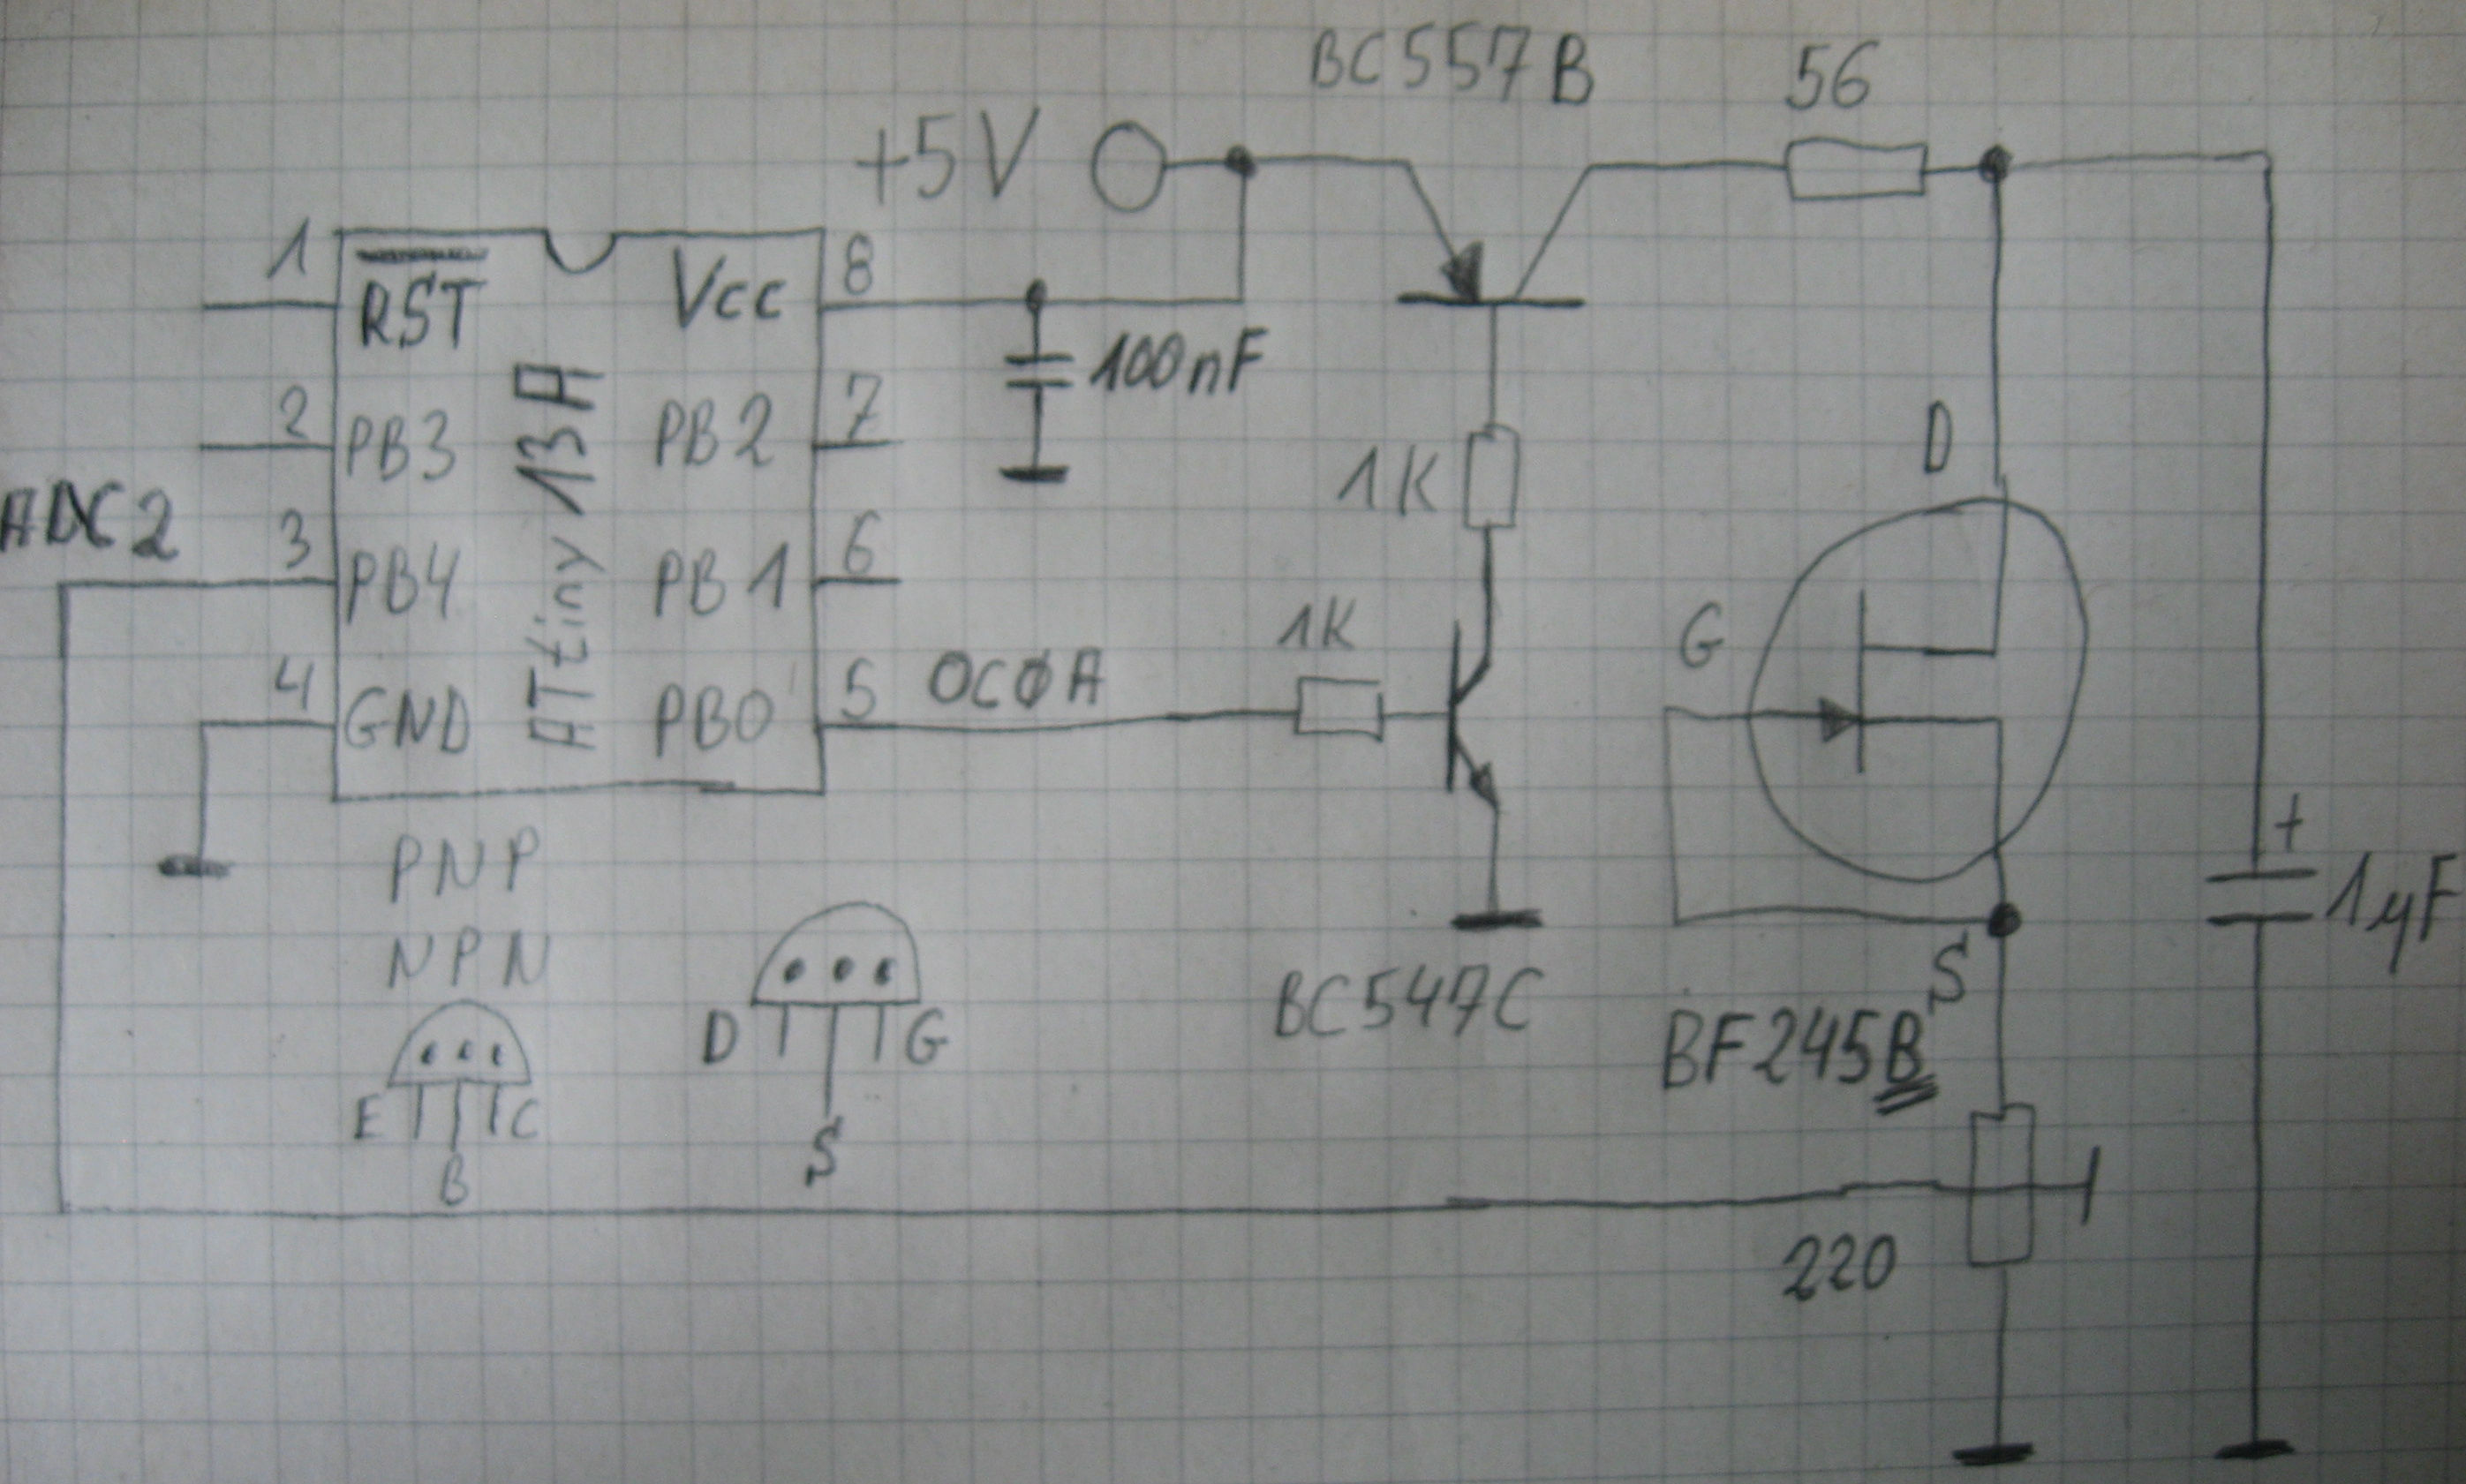 BC557B
56
+5V
1
RST
Vcc
8
100nF
2
PB3
PB2
7
D
1K
ADC2
3
PB4
ATtiny 13A
PB1
6
1K
G
4
GND
PB0
5
OC0A
+
1µF
PNP
NPN
BC547C
S
D
G
BF245B
E
C
S
B
220